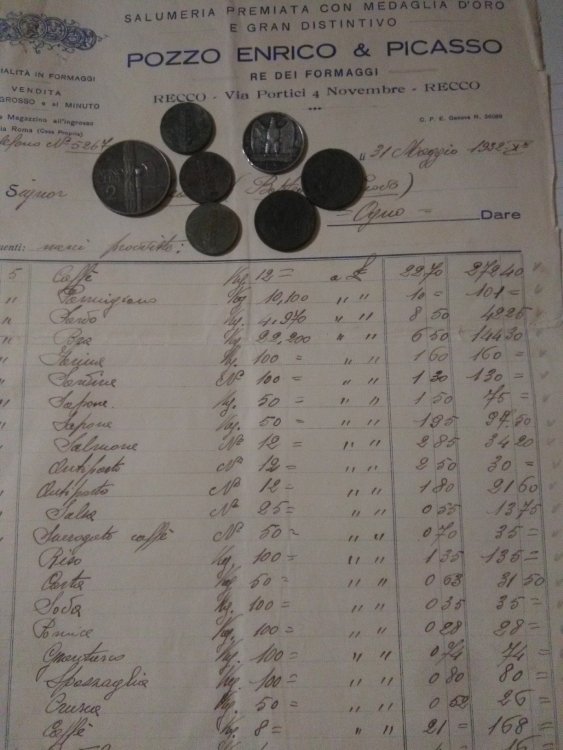 SALUMERIA PREMIATA CON MEDAGLIA D'ORO
E GRAN DISTINTIVO
POZZO ENRICO & PICASSO
RE DEI FORMAGGI
RECCO - Via Portici 4 Novembre - RECCO
IALITÀ IN FORMAGGI
VENDITA
GROSSO e al MINUTO
e Magazzino all'Ingrosso
ia Roma (Casa Propria)
elefono N° 5267
C. P. E. Genova N. 36089
li 31 Maggio 1932
Signor
Dare
menti:
5 Caffè Kg. 12 = a £ 22 70 272 40
" Parmigiano Kg 10,100 " " 10 = 101 =
" Sardo Kg. 4,970 " " 8 50 42 25
" Bra Kg. 22,200 " " 6 50 144 30
" Farina Kg. 100 = " " 1 60 160 =
" Sardine N° 100 = " " 1 30 130 =
" Sapone Kg. 50 = " " 1 50 75 =
" Sapone Kg. 50 = " " 1 95 97 50
" Salmone N° 12 = " " 2 85 34 20
" Antipasto N° 12 = " " 2 50 30 =
" Antipasto N° 12 = " " 1 80 21 60
" Salsa N° 25 = " " 0 55 13 75
" Surrogato caffè N° 50 = " " 0 70 35 =
" Riso Kg. 100 = " " 1 35 135 =
" Kg. 50 = " " 0 63 31 50
" Soda Kg. 100 = " " 0 35 35 =
" Kg. 100 = " " 0 28 28 =
" Kg. 100 = " " 0 74 74 =
" Kg. 100 = " " 0 80 80 =
" Crusca Kg. 50 = " " 0 52 26 =
" Caffè Kg. 8 = " " 21 = 168 =